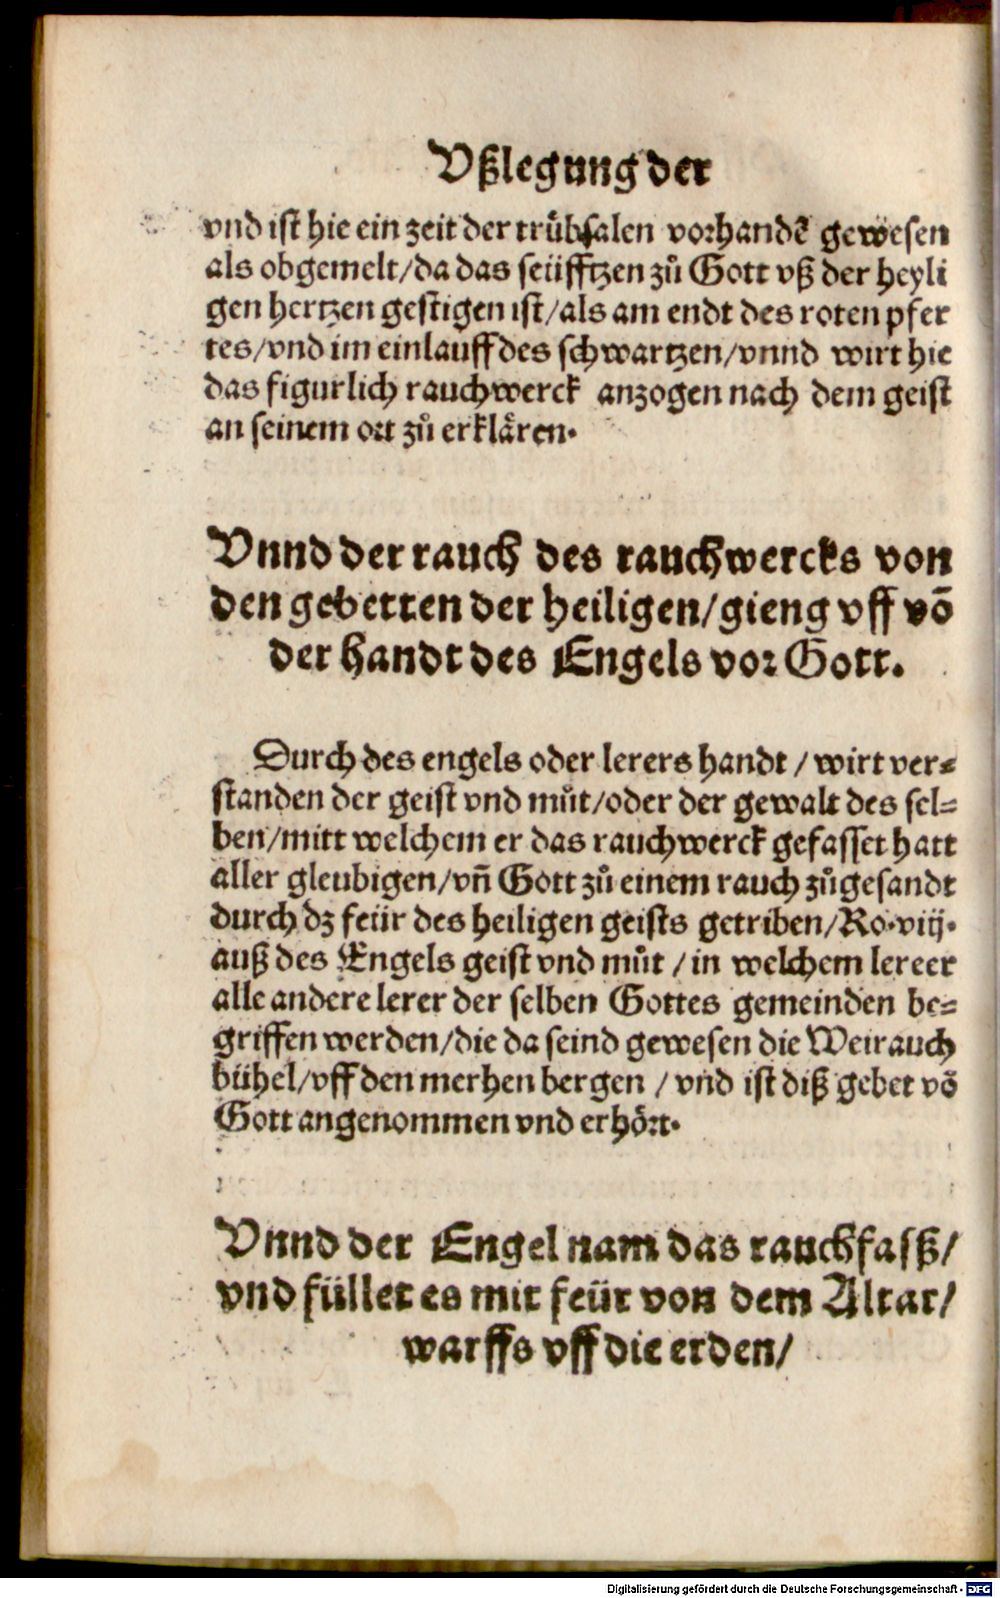 Vßlegung der
vnd ist hie ein zeit der trůbsalen vorhandē gewesen
als obgemelt/da das seüfftzen zů Gott vß der heyli
gen hertzen gestigen ist/als am endt des roten pfer
tes/vnd im einlauff des schwartzen/vnnd wirt hie
das figurlich rauchwerck anzogen nach dem geist
an seinem ort zů erklären.
Vnnd der rauch des rauchwercks von
den gebetten der heiligen/gieng vff võ
der handt des Engels vor Gott.
Durch des engels oder lerers handt / wirt ver⸗
standen der geist vnd můt/oder der gewalt des sel⸗
ben/mitt welchem er das rauchwerck gefasset hatt
aller gleubigen/vñ Gott zů einem rauch zůgesandt
durch dz feür des heiligen geists getriben/Ro.viij.
auß des Engels geist vnd můt / in welchem lereer
alle andere lerer der selben Gottes gemeinden be⸗
griffen werden/die da seind gewesen die Weirauch
bühel/vff den merhen bergen / vnd ist diß gebet võ
Gott angenommen vnd erhört.
Vnnd der Engel nam das rauchfasß/
vnd füllet es mit feür von dem Altar/
warffs vff die erden/
Digitalisierung gefördert durch die Deutsche Forschungsgemeinschaft - DFG